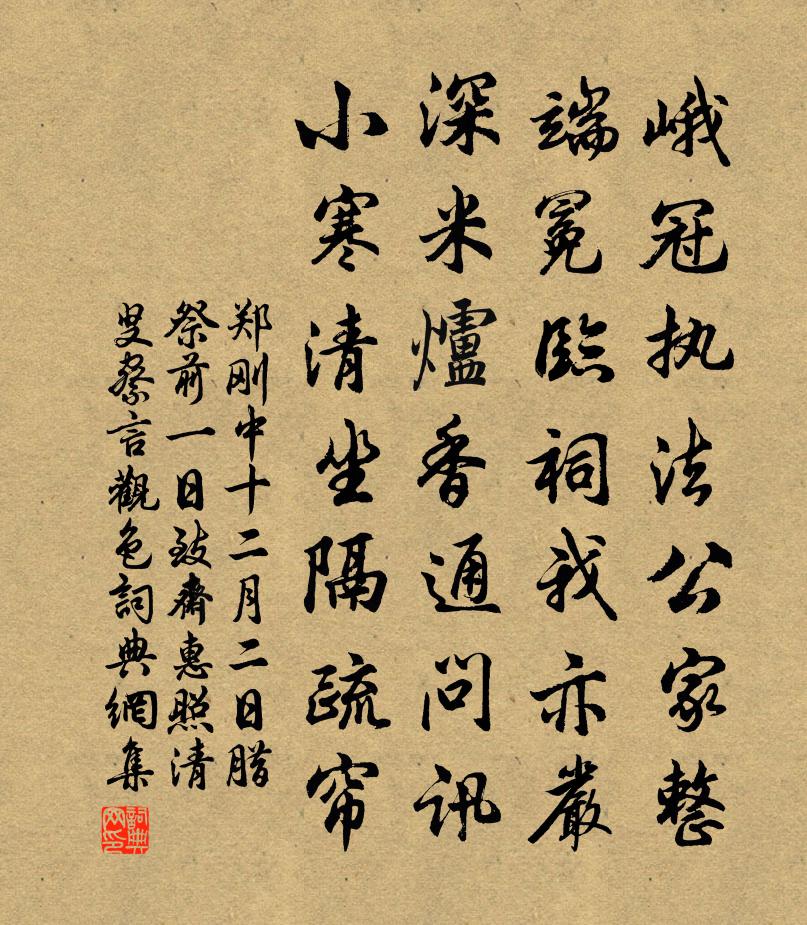 峨冠执法公家整
端冕臨祠我亦嚴
深米爐香通問訊
小寒清坐隔疏帘
郑刚中十二月二日腊
祭前一日致齋惠照清
叟察言觀色詞典網集
詞典网印